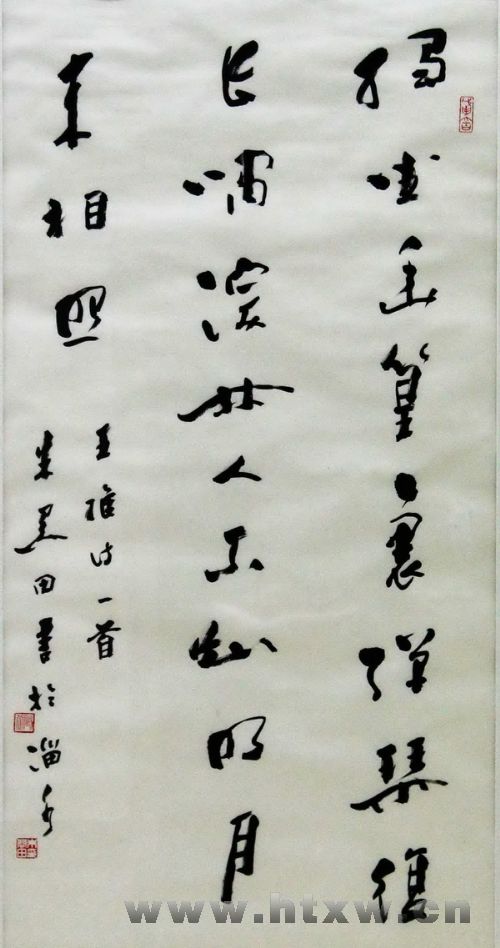 獨坐幽篁裏彈琴復
長嘯深林人不知明月
來相照
王維诗一首
朱田書於淄水
www.htxw.cn